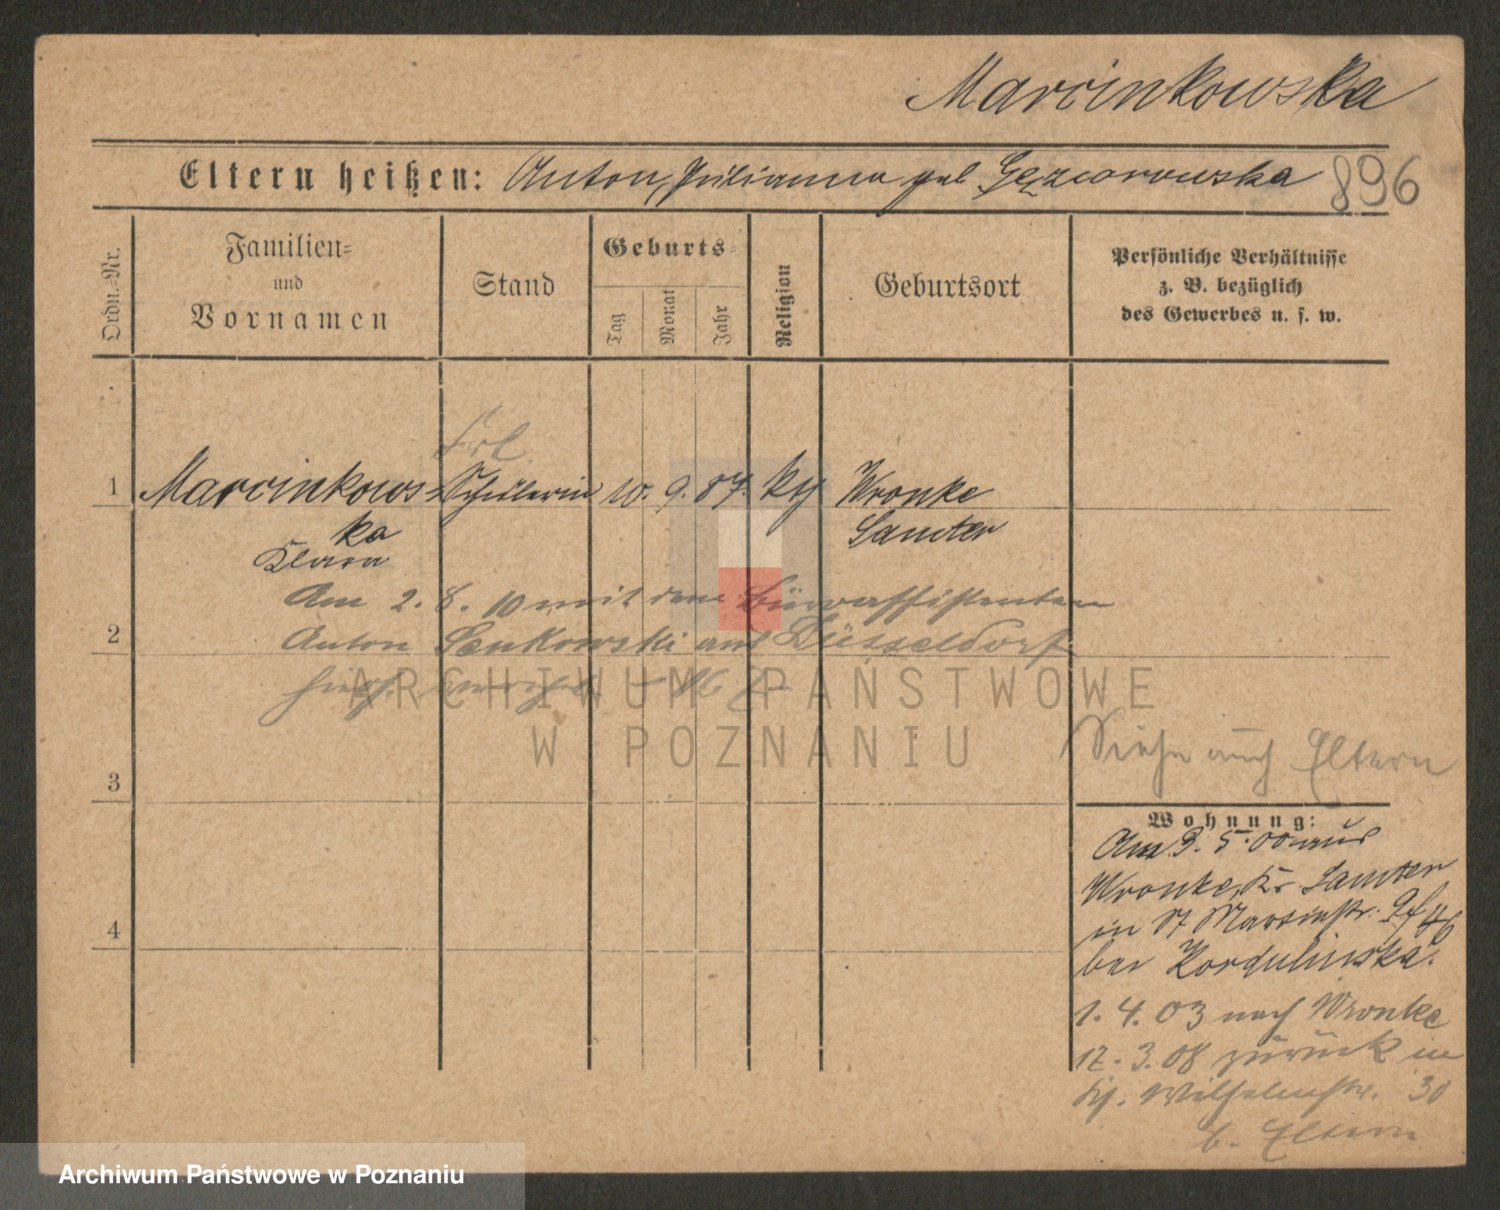 Marcinkowska
Eltern heißen: Anton, Julianna geb
896
Ordn.-Nr.
Familien-
und
Vornamen
Stand
Geburts-
Tag
Monat
Jahr
Religion
Geburtsort
Persönliche Verhältnisse
z. B. bezüglich
des Gewerbes u. s. w.
Frl
1 Marcinkows- Schülerin 10. 9. 87. Wronke
ka Samter
Klara
Am 2. 8. 10 mit dem Büroassistenten
2 Anton Senkowski aus Düsseldorf
ARCHIWUM PAŃSTWOWE
W POZNANIU
Siehe auch Eltern
3
Wohnung:
Am 3. 5. 00 aus
Wronke, Kr. Samter
in St Martinstr.
4
bei Kordulinska.
1. 4. 03 nach Wronke
12. 3. 08 zurück in
Wilhelmstr. 30
b. Eltern
Archiwum Państwowe w Poznaniu